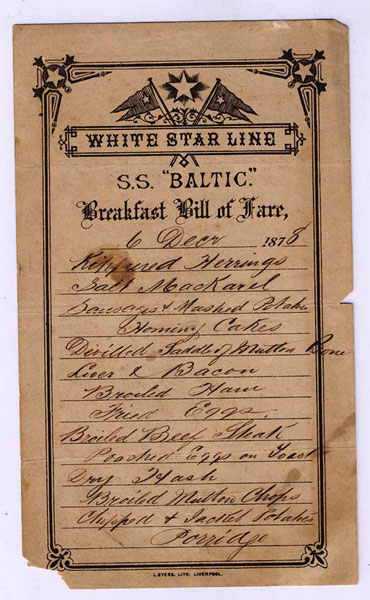 WHITE STAR LINE
S.S. "BALTIC."
Breakfast Bill of Fare,
6 Decr 1878
Kippured Herrings
Salt Mackarel
Sausages & Mashed Potatoes
Hominy Cakes
Devilled Saddle of Mutton Bone
Liver & Bacon
Broiled Ham
Fried Eggs.
Broiled Beef Steak
Poached Eggs on Toast
Dry Hash
Broiled Mutton Chops
Chipped & Jacket Potatoes
Porridge
L. BYERS, LITH. LIVERPOOL.